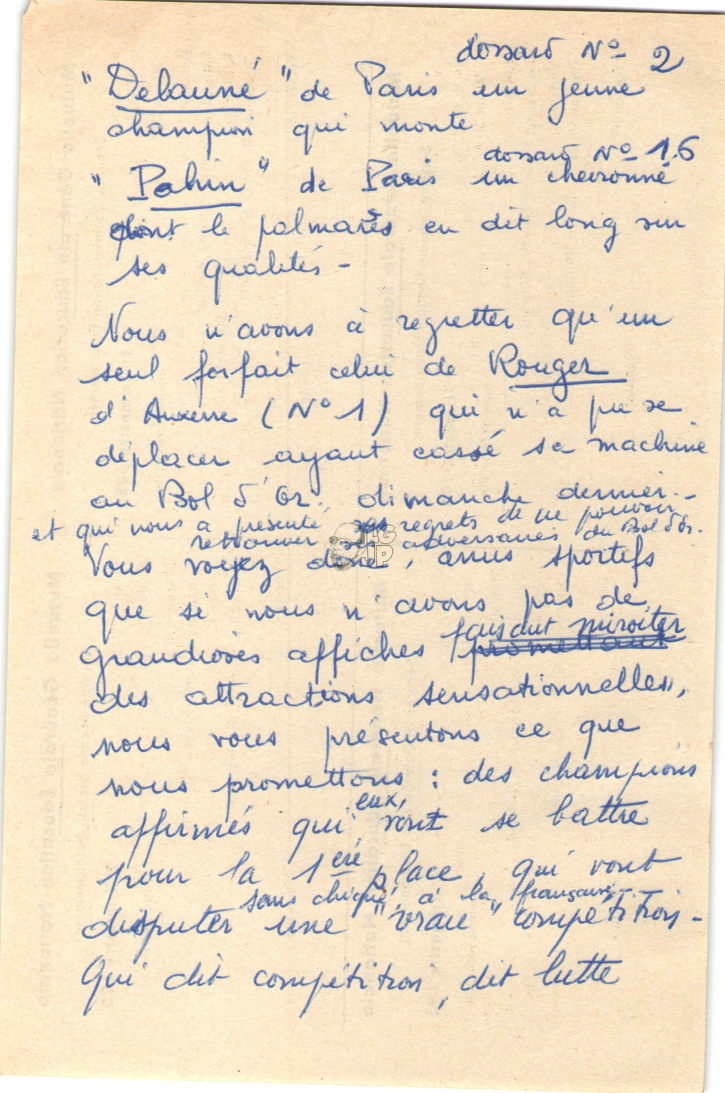 dossard N° 2
"Delauné" de Paris un jeune
champion qui monte
dossard N° 16
"Pahin" de Paris un chevronné
dont le palmarès en dit long sur
ses qualités -
Nous n'avons à regretter qu'un
seul forfait celui de Rouger
d'Auxerre (N° 1) qui n'a pu se
déplacer ayant cassé sa machine
au Bol d'Or dimanche dernier -
et qui nous a présenté ses regrets de ne pouvoir
retrouver adversaires du Bol d'Or.
Vous voyez donc, amis sportifs
que si nous n'avons pas de
faisant miroiter
grandioses affiches promettant
des attractions sensationnelles,
nous vous présentons ce que
nous promettons : des champions
eux,
affirmés qui vont se battre
pour la 1ère place, qui vont
sans chiqué, à la française -
disputer une "vraie" compétition -
Qui dit compétition, dit lutte